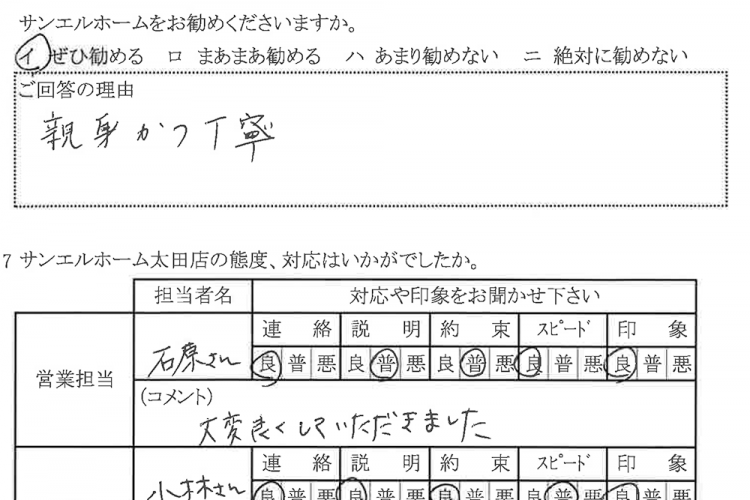 サンエルホームをお勧めくださいますか。
イ ぜひ勧める ロ まあまあ勧める ハ あまり勧めない ニ 絶対に勧めない
ご回答の理由
親身かつ丁寧
7 サンエルホーム太田店の態度、対応はいかがでしたか。
担当者名 対応や印象をお聞かせ下さい
営業担当 石原さん 連絡 説明 約束 スピード 印象
良 普 悪 良 普 悪 良 普 悪 良 普 悪 良 普 悪
(コメント)
大変良くしていただきました
小林さん 連絡 説明 約束 スピード 印象
良 普 悪 良 普 悪 良 普 悪 良 普 悪 良 普 悪